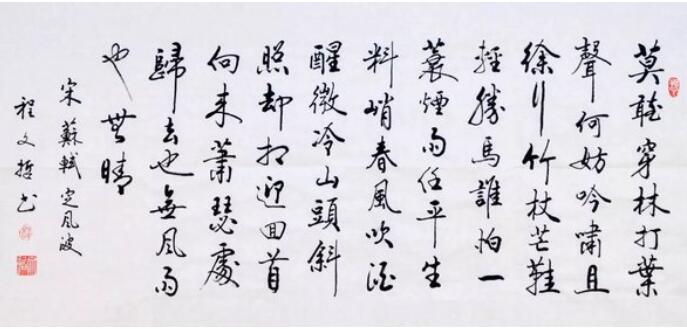 莫聽穿林打葉
聲何妨吟嘯且
徐行竹杖芒鞋
輕勝馬誰怕一
蓑煙雨任平生
料峭春風吹酒
醒微冷山頭斜
照却相迎回首
向来蕭瑟處
歸去也無風雨
也無晴
宋蘇軾定風波
程文哲书